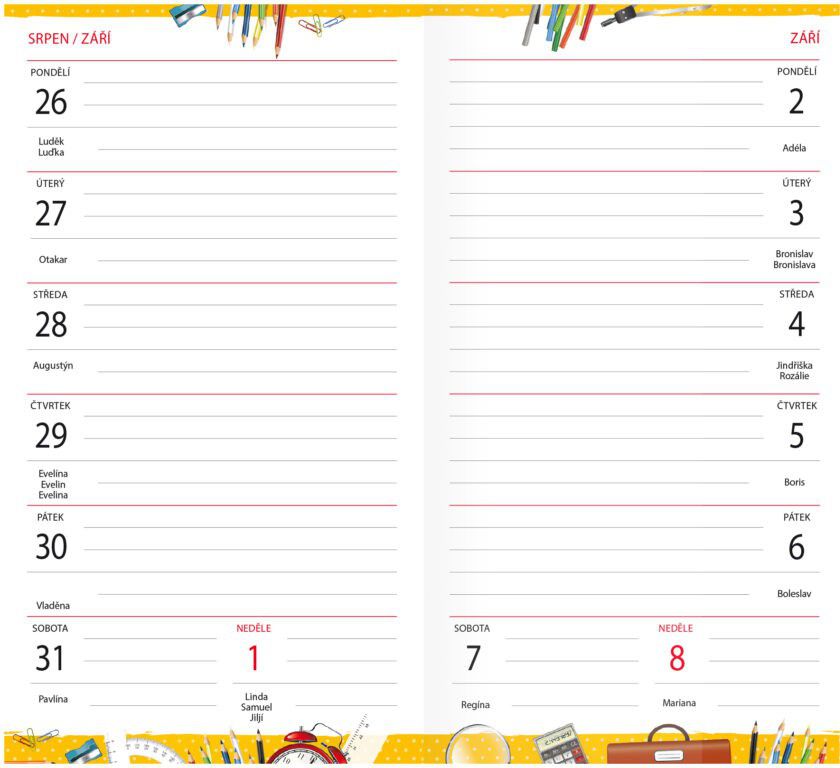 SRPEN / ZÁŘÍ
PONDĚLÍ
26
Luděk
Luďka
ÚTERÝ
27
Otakar
STŘEDA
28
Augustýn
ČTVRTEK
29
Evelína
Evelin
Evelina
PÁTEK
30
Vladěna
SOBOTA
31
Pavlína
NEDĚLE
1
Linda
Samuel
Jiljí
ZÁŘÍ
PONDĚLÍ
2
Adéla
ÚTERÝ
3
Bronislav
Bronislava
STŘEDA
4
Jindřiška
Rozálie
ČTVRTEK
5
Boris
PÁTEK
6
Boleslav
SOBOTA
7
Regína
NEDĚLE
8
Mariana